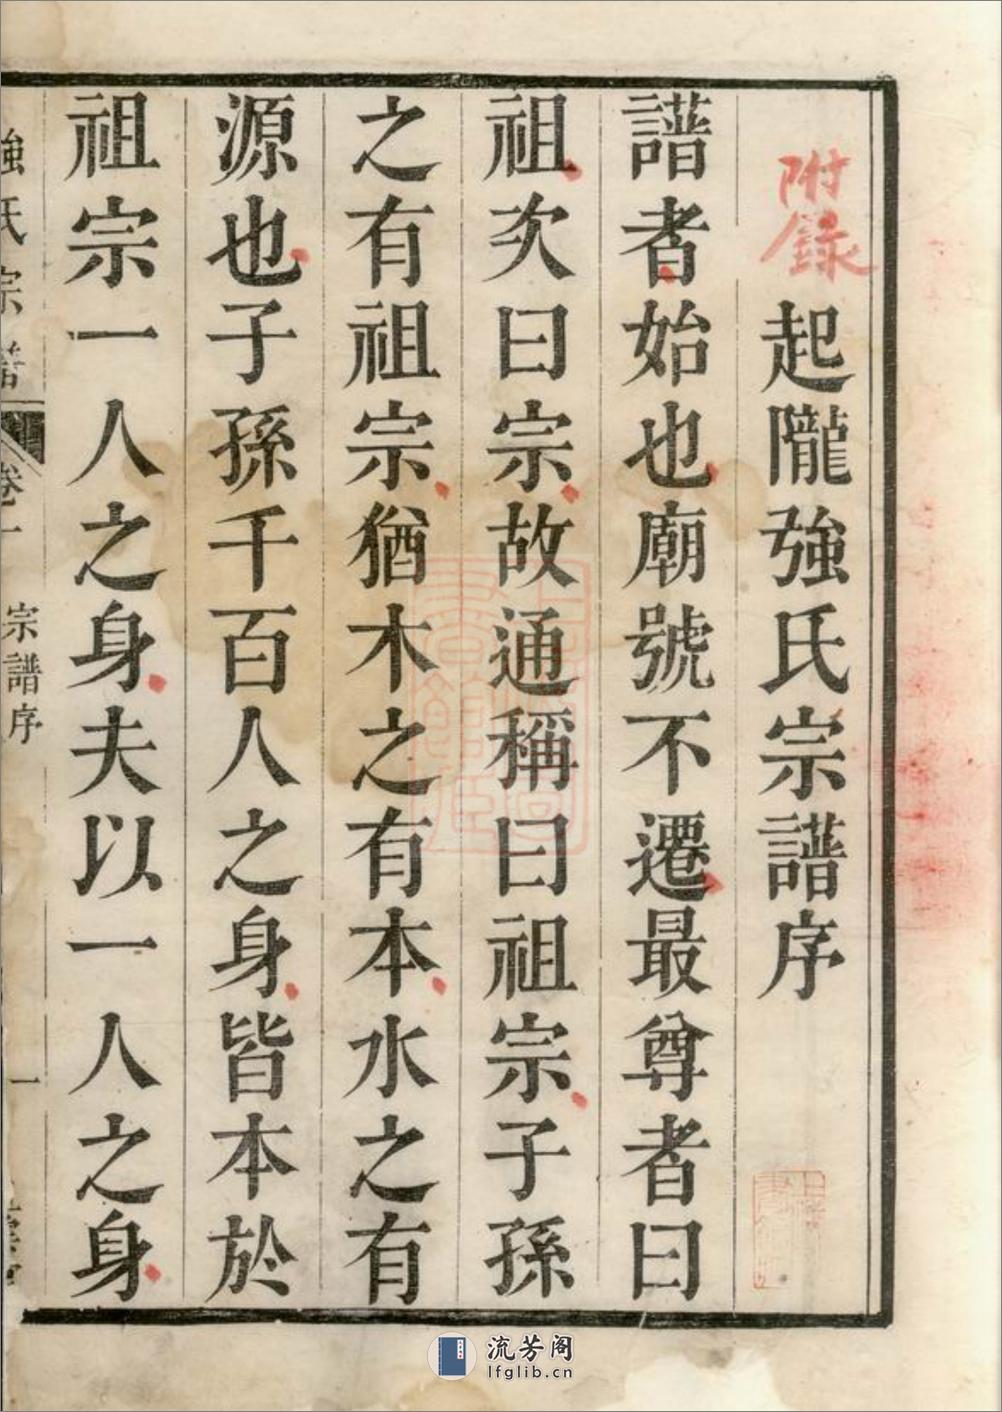 附錄
起隴強氏宗譜序
譜者始也廟號不遷最尊者曰
祖次曰宗故通稱曰祖宗子孫
之有祖宗猶木之有本水之有
源也子孫千百人之身皆本於
祖宗一人之身夫以一人之身
強氏宗譜 卷一 宗譜序 一
流芳阁
lfglib.cn